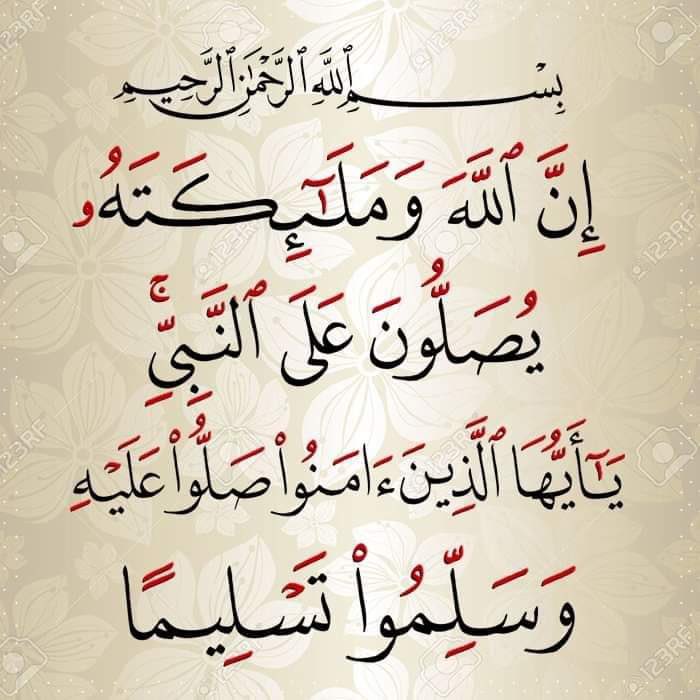 بِسْمِ ٱللَّهِ ٱلرَّحْمَٰنِ ٱلرَّحِيمِ
إِنَّ ٱللَّهَ وَمَلَٰٓئِكَتَهُۥ
يُصَلُّونَ عَلَى ٱلنَّبِيِّۚ
يَٰٓأَيُّهَا ٱلَّذِينَ ءَامَنُوا۟ صَلُّوا۟ عَلَيْهِ
وَسَلِّمُوا۟ تَسْلِيمًا
123RF